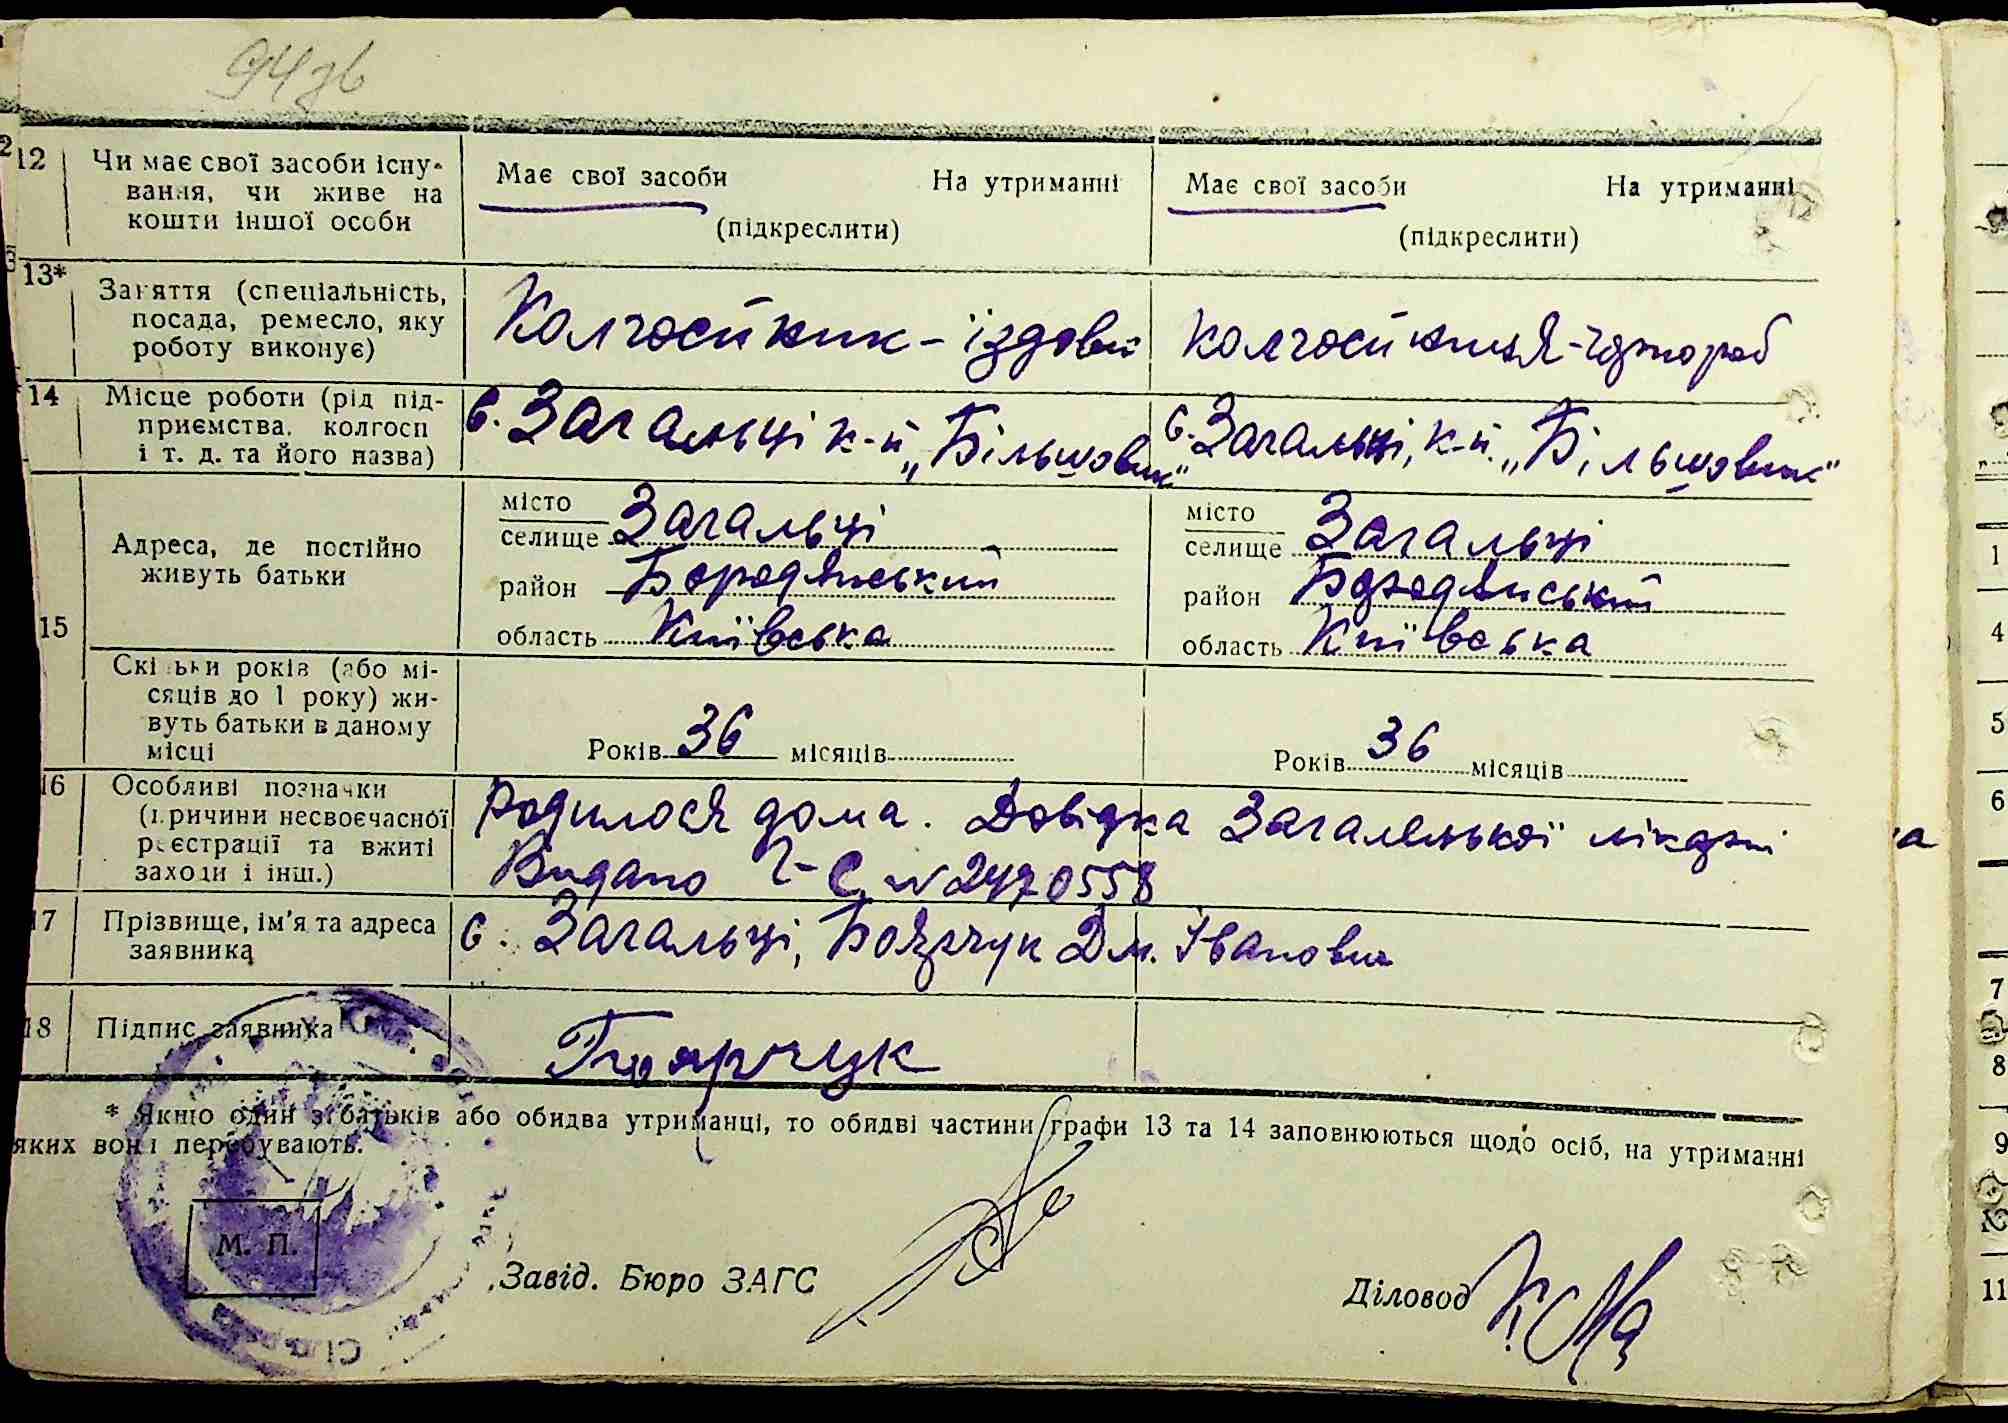 94зв
12 Чи має свої засоби існу-
вання, чи живе на
кошти іншої особи
Має свої засоби На утриманні
(підкреслити)
Має свої засоби На утриманні
(підкреслити)
13* Заняття (спеціальність,
посада, ремесло, яку
роботу виконує)
Колгоспник-їздовик
колгоспниця-чорнороб
14 Місце роботи (рід під-
приємства, колгосп
і т. д. та його назва)
с. Загальці к-п
„Більшовик"
с. Загальці, к-п. „Більшовик"
15 Адреса, де постійно
живуть батьки
місто
селище Загальці
район Бородянський
область Київська
місто
селище Загальці
район Бородянський
область Київська
Скільки років (або мі-
сяців до 1 року) жи-
вуть батьки в даному
місці
Років 36 місяців
Років 36 місяців
16 Особливі позначки
(причини несвоєчасної
реєстрації та вжиті
заходи і інш.)
Родилося дома. Довідка Загалецької лікарні
Видано І-С № 2470558
17 Прізвище, ім'я та адреса
заявника
с. Загальці, Боярчук Дм. Іванович
18 Підпис заявника
Боярчук
* Якщо один з батьків або обидва утриманці, то обидві частини графи 13 та 14 заповнюються щодо осіб, на утриманні
яких вони перебувають.
М. П.
Завід. Бюро ЗАГС
Діловод